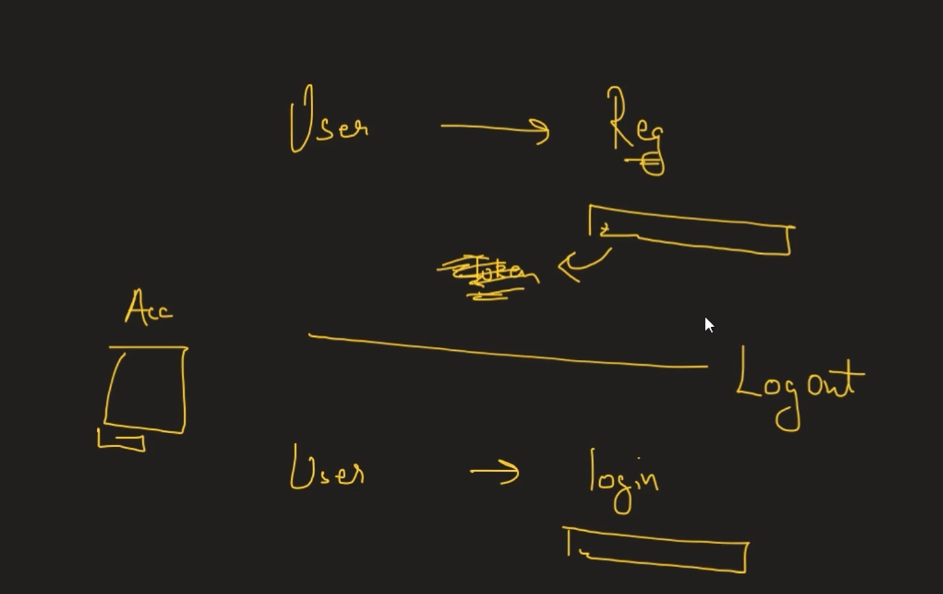 User → Reg
Token
Acc
Logout
User → login